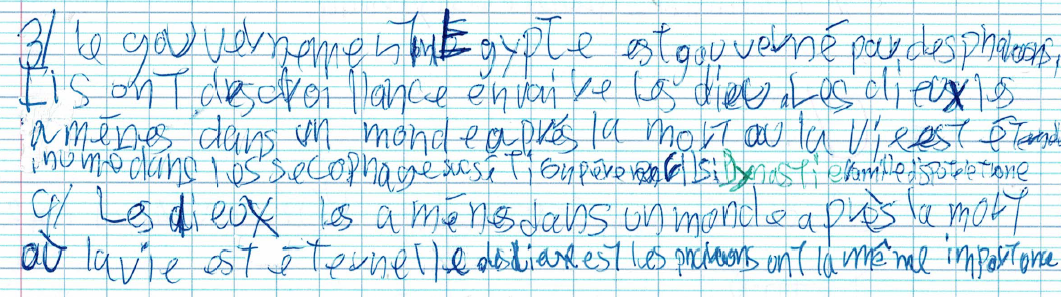 3/ Le gouvernement Egypte est gouverné par des pharaons,
Ils ont des croillance envaive les dieu. Les dieux les
amènes dans un monde après la mort ou la vie est éterne
inume dans les secophage père fils Dynastie
4/ Les dieux les amènes dans un monde après la mort
où la vie est éternelle est les pharaons ont la même importance